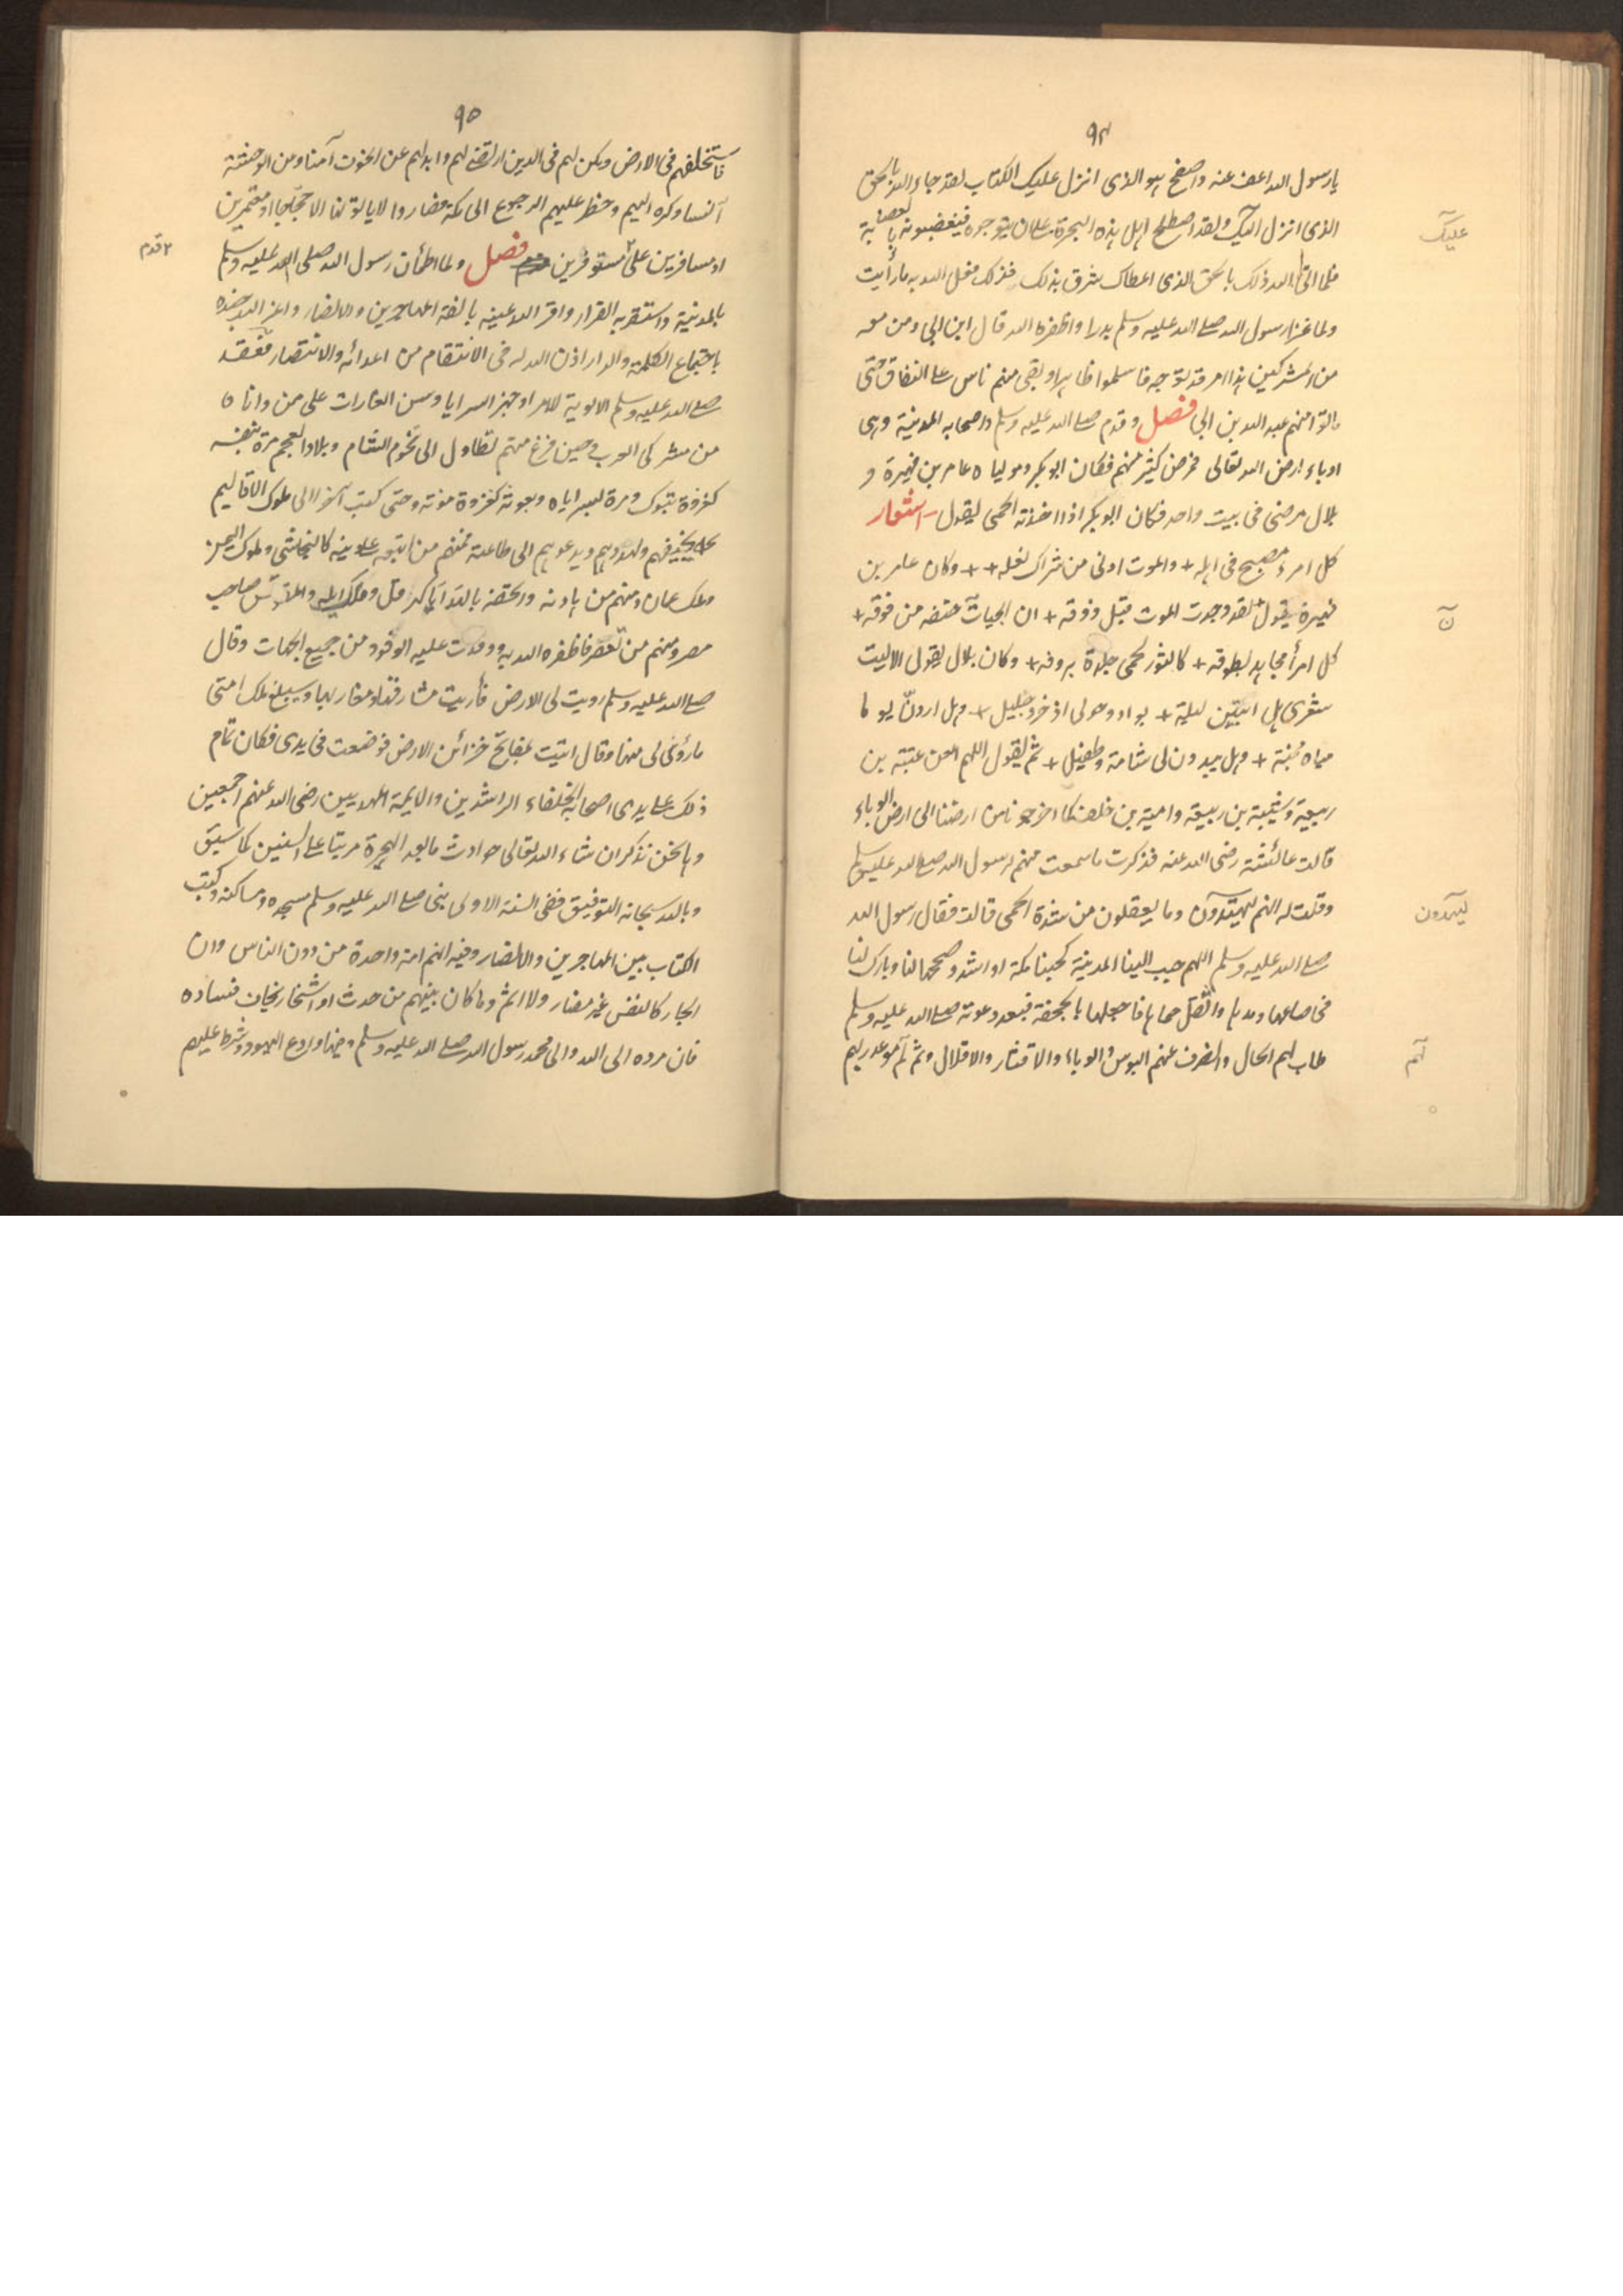 ٩٤
يا رسول الله اعف عنه واصفح هو الذى انزل عليك الكتاب لقد جاء الله بالحق
الذى انزل اليك ولقد اصطلح اهل هذه البحرة على ان يتوجوه فيعصبونه بالعصابة
عليك
فلما اتى الله ذلك بالحق الذى اعطاك شرق بذلك فذلك فعل الله به ما رأيت
ولما غزا رسول الله صلى الله عليه وسلم بدرا واظفره الله قال ابن ابي ومن معه
من المشركين هذا امر قد توجه فاسلموا ظاهرا وبقى منهم ناس على النفاق حتى
ماتوا منهم عبد الله بن ابي فصل وقدم صلى الله عليه وسلم واصحابه المدينة وهى
اوباء ارض الله تعالى فمرض كثير منهم فكان ابو بكر ومولياه عامر بن فهيرة و
بلال مرضى فى بيت واحد فكان ابو بكر اذا اخذته الحمى يقول اشعار
كل امرء مصبح فى اهله + والموت ادنى من شراك نعله ++ وكان عامر بن
فهيرة يقول لقد وجدت الموت قبل ذوقه + ان الجبان حتفه من فوقه +
ن
كل امرأ مجاهد بطوقه + كالثور يحمى جلده بروقه + وكان بلال يقول الا ليت
شعرى هل ابيتن ليلة + بواد وحولى اذخر وجليل + وهل اردن يوما
مياه مجنة + وهل يبدون لى شامة وطفيل + ثم يقول اللهم العن عتبة بن
ربيعة وشيبة بن ربيعة وامية بن خلف كما اخرجونا من ارضنا الى ارض الوباء
قالت عائشة رضى الله عنه فذكرت ما سمعت منهم لرسول الله صلى الله عليه وسلم
وقلت له انهم ليهتدون وما يعقلون من شدة الحمى قالت فقال رسول الله
ليهذون
صلى الله عليه وسلم اللهم حبب الينا المدينة كحبنا مكة او اشد وصححها لنا وبارك لنا
فى صاعها ومدها وانقل حماها فاجعلها بالجحفة فبعد دعوته صلى الله عليه وسلم
طاب لهم الحال وانصرف عنهم البوس والوباء والاقتار والاقلال وتم لهم موعد ربهم
٩٥
فاستخلفهم فى الارض ومكن لهم فى الدين ارتضى لهم وابدلهم عن الخوف آمنا ومن الوحشة
آنسا وكره اليهم وحظر عليهم الرجوع الى مكة فصاروا لا ياتونها الا حجّاجا او معتمرين
او مسافرين على مستوفزين فصل ولما اطمأن رسول الله صلى الله عليه وسلم
قدم
بالمدينة واستقر به القرار واقر الله عينه بالفة المهاجرين والانصار واعز الله جنده
باجتماع الكلمة والدار اذن الله له فى الانتقام من اعدائه والانتصار فعقد
صلى الله عليه وسلم الالوية للامراء وجهز السرايا وسن الغارات على من وإناه
من مشركى العرب وحين فرغ منهم تطاول الى تخوم الشام وبلاد العجم مرة بنفسه
كغزوة تبوك ومرة بسراياه وبعوثه كغزوة موته وحتى كتب آخرا الى ملوك الاقاليم
يخوفهم ويهددهم ويدعوهم الى طاعته فمنهم من اتبعه على دينه كالنجاشى وملوك اليمن
وملك عمان ومنهم من هادنه واتحفه بالهدايا كهرقل وملك ايله والمقوقس صاحب
مصر ومنهم من تعصر فاظفره الله به ووفدت عليه الوفود من جميع الجهات وقال
صلى الله عليه وسلم زويت لى الارض فاريت مشارقها ومغاربها وسيبلغ ملك امتى
ما زوى لى منها وقال اتيت بمفاتيح خزائن الارض فوضعت فى يدى فكان تمام
ذلك على يدى اصحابه الخلفاء الراشدين والايمة المهديين رضى الله عنهم اجمعين
وها نحن نذكر ان شاء الله تعالى حوادث ما بعد الهجرة مرتبا على السنين كما سبق
وبالله سبحانه التوفيق ففى السنة الاولى بنى صلى الله عليه وسلم مسجده ومساكنه وكتب
الكتاب بين المهاجرين والانصار وفيه انهم امة واحدة من دون الناس وان
الجار كالنفس غير مضار ولا اثم وما كان بينهم من حدث او اشتجار يخاف فساده
فان مرده الى الله والى محمد رسول الله صلى الله عليه وسلم وفيها وادع اليهود وشرط عليهم